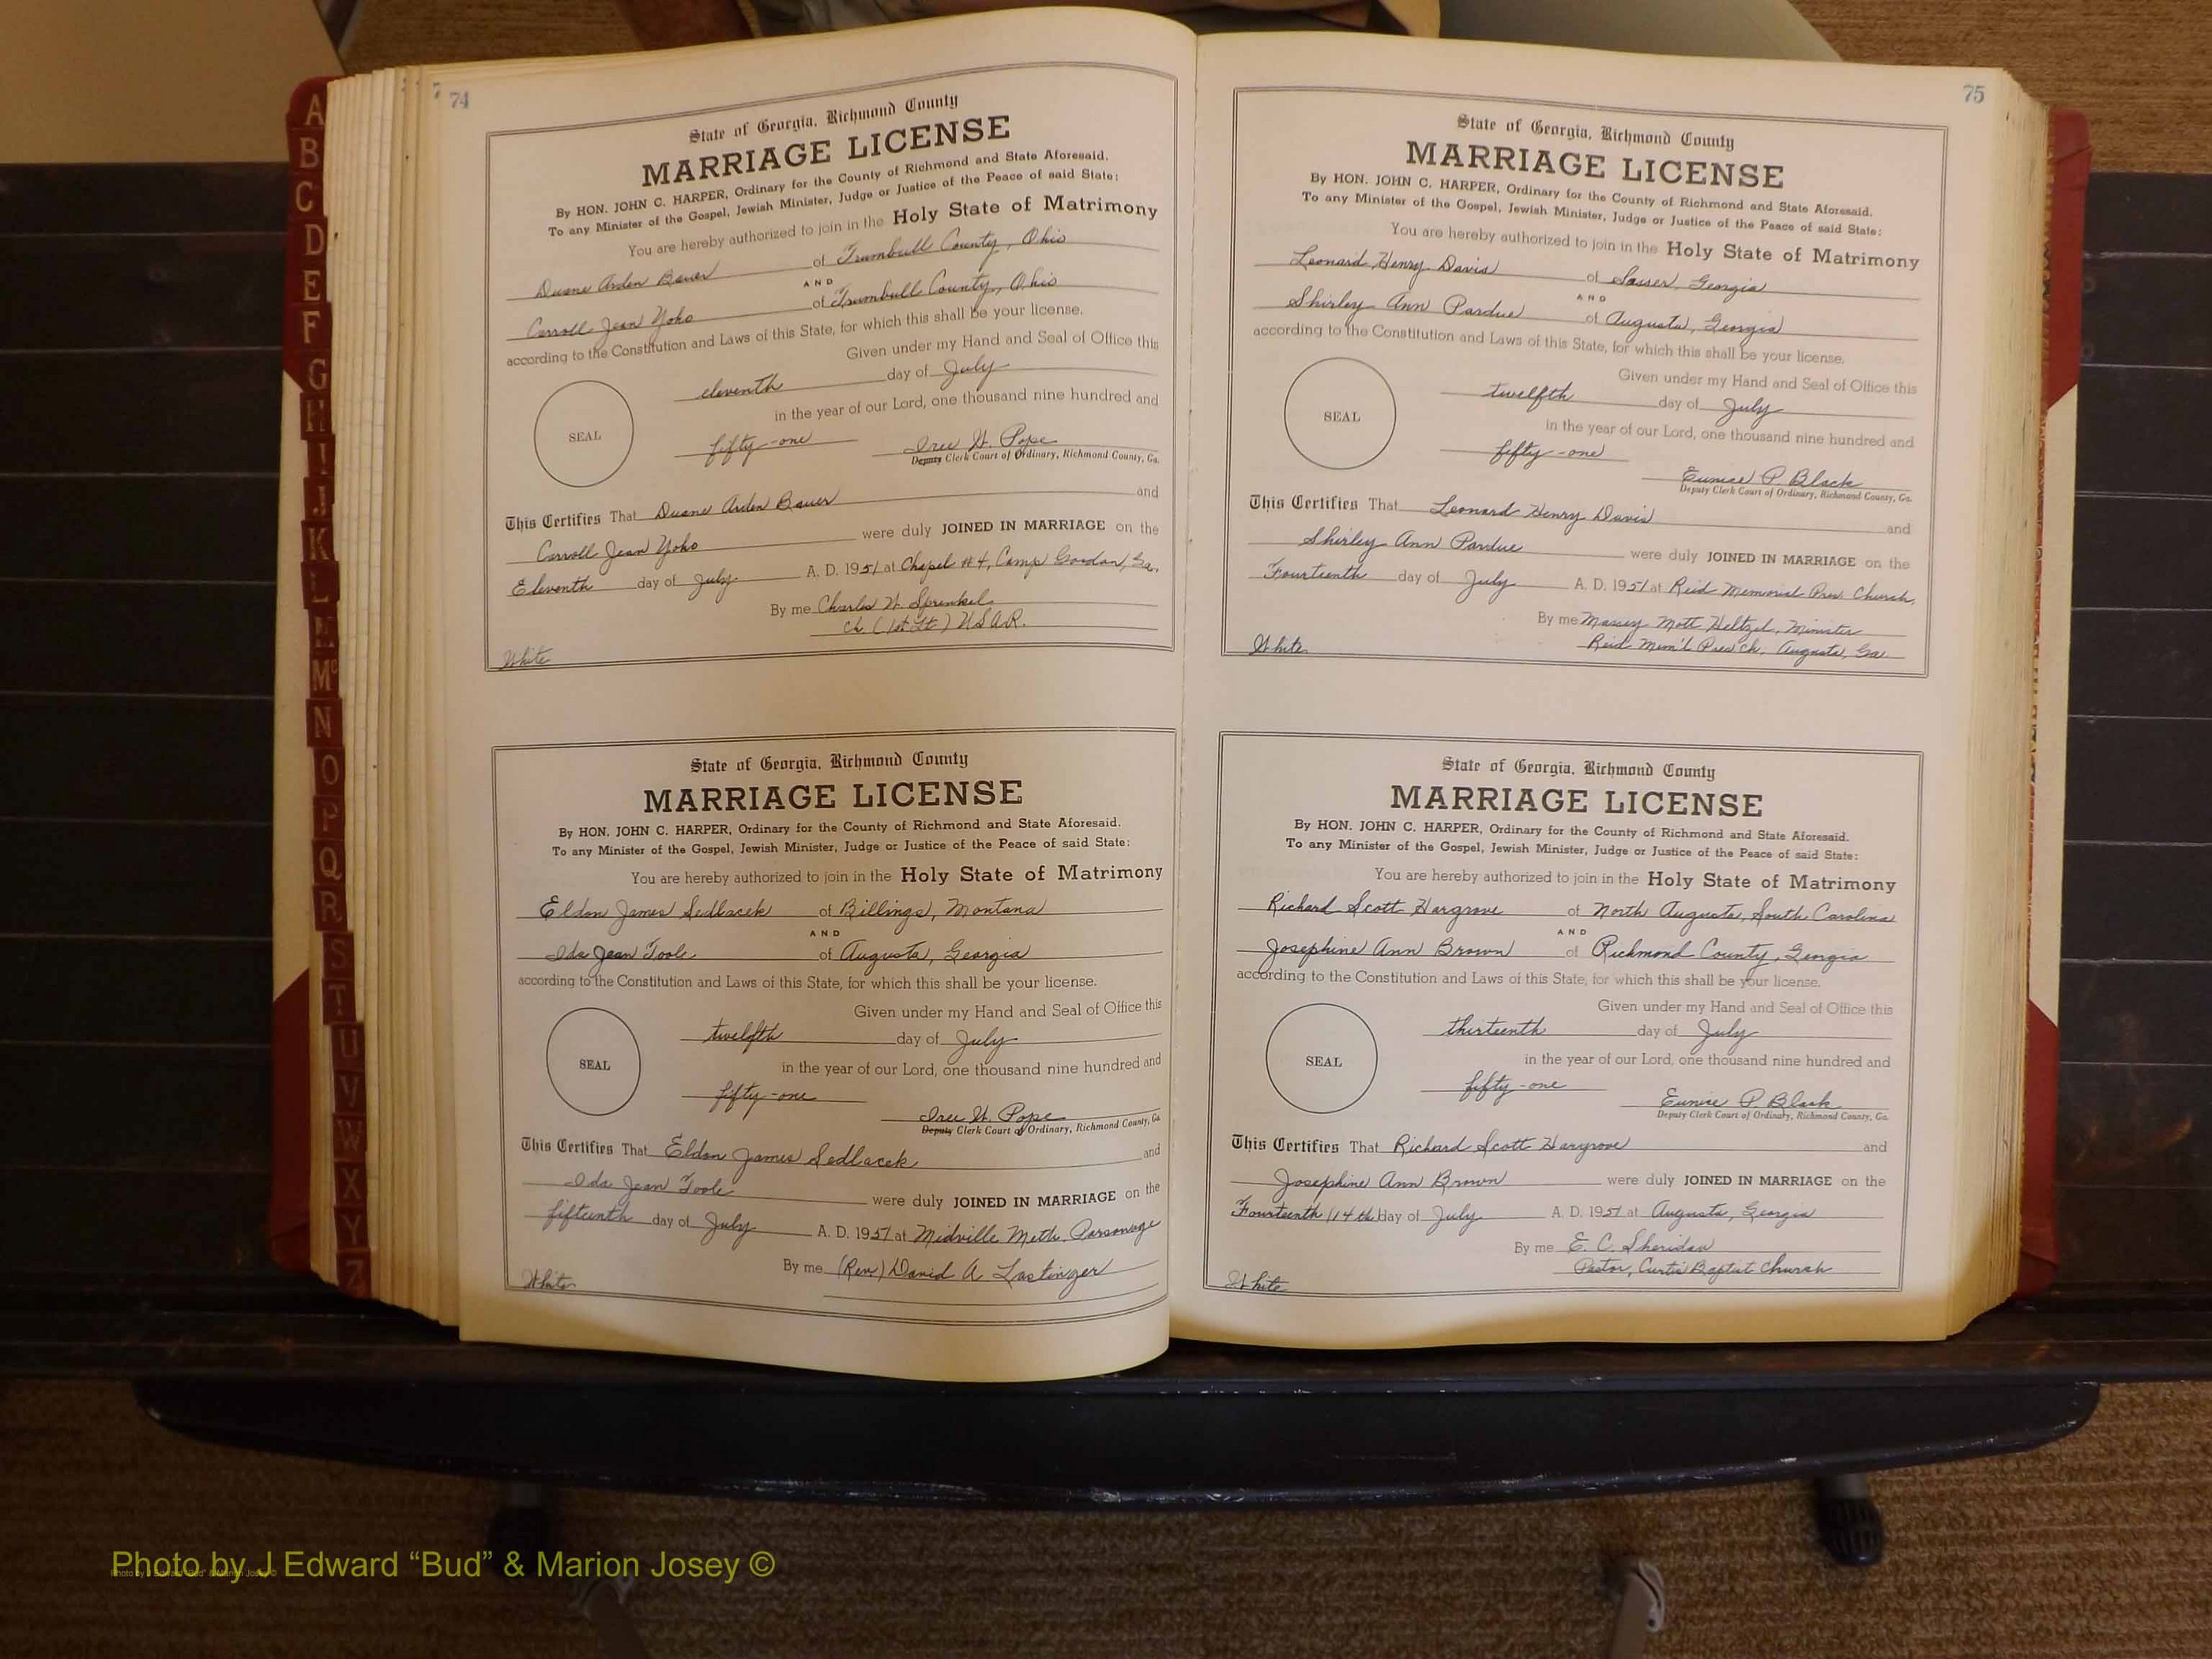 A
B
C
D
E
F
G
H
I
J
K
L
M
Mc
N
O
P
Q
R
S
T
U
V
W
X
Y
Z
74
State of Georgia, Richmond County
MARRIAGE LICENSE
By HON. JOHN C. HARPER, Ordinary for the County of Richmond and State Aforesaid.
To any Minister of the Gospel, Jewish Minister, Judge or Justice of the Peace of said State:
You are hereby authorized to join in the Holy State of Matrimony
Duane Arden Bauer of Trumbull County, Ohio
AND
Carroll Jean Yoho of Trumbull County, Ohio
according to the Constitution and Laws of this State, for which this shall be your license.
Given under my Hand and Seal of Office this
eleventh day of July
in the year of our Lord, one thousand nine hundred and
SEAL
fifty-one H. Pope
Deputy Clerk Court of Ordinary, Richmond County, Ga.
This Certifies That Duane Arden Bauer and
Carroll Jean Yoho were duly JOINED IN MARRIAGE on the
Eleventh day of July A. D. 1951 at Chapel #4, Camp Gordon, Ga.
By me Charles W. Sprenkel
Ch. (1st Lt) USAR.
White
State of Georgia, Richmond County
MARRIAGE LICENSE
By HON. JOHN C. HARPER, Ordinary for the County of Richmond and State Aforesaid.
To any Minister of the Gospel, Jewish Minister, Judge or Justice of the Peace of said State:
You are hereby authorized to join in the Holy State of Matrimony
Eldon James Sedlacek of Billings, Montana
AND
Ida Jean Toole of Augusta, Georgia
according to the Constitution and Laws of this State, for which this shall be your license.
Given under my Hand and Seal of Office this
twelfth day of July
in the year of our Lord, one thousand nine hundred and
SEAL
fifty-one H. Pope
Deputy Clerk Court of Ordinary, Richmond County, Ga.
This Certifies That Eldon James Sedlacek and
Ida Jean Toole were duly JOINED IN MARRIAGE on the
fifteenth day of July A. D. 1951 at Midville Meth. Parsonage
By me (Rev) David A Lastinger
White
75
State of Georgia, Richmond County
MARRIAGE LICENSE
By HON. JOHN C. HARPER, Ordinary for the County of Richmond and State Aforesaid.
To any Minister of the Gospel, Jewish Minister, Judge or Justice of the Peace of said State:
You are hereby authorized to join in the Holy State of Matrimony
Leonard Henry Davis of Sasser, Georgia
AND
Shirley Ann Pardue of Augusta, Georgia
according to the Constitution and Laws of this State, for which this shall be your license.
Given under my Hand and Seal of Office this
twelfth day of July
SEAL
in the year of our Lord, one thousand nine hundred and
fifty-one Eunice P. Black
Deputy Clerk Court of Ordinary, Richmond County, Ga.
This Certifies That Leonard Henry Davis and
Shirley Ann Pardue were duly JOINED IN MARRIAGE on the
Fourteenth day of July A. D. 1951 at Reid Memorial Pres. Church,
By me Massey Mott Heltzel, Minister
Reid Mem'l Pres Ch, Augusta, Ga.
White
State of Georgia, Richmond County
MARRIAGE LICENSE
By HON. JOHN C. HARPER, Ordinary for the County of Richmond and State Aforesaid.
To any Minister of the Gospel, Jewish Minister, Judge or Justice of the Peace of said State:
You are hereby authorized to join in the Holy State of Matrimony
Richard Scott Hargrove of North Augusta, South Carolina
AND
Josephine Ann Brown of Richmond County, Georgia
according to the Constitution and Laws of this State, for which this shall be your license.
Given under my Hand and Seal of Office this
thirteenth day of July
SEAL
in the year of our Lord, one thousand nine hundred and
fifty-one Eunice P. Black
Deputy Clerk Court of Ordinary, Richmond County, Ga.
This Certifies That Richard Scott Hargrove and
Josephine Ann Brown were duly JOINED IN MARRIAGE on the
Fourteenth (14th) day of July A. D. 1951 at Augusta, Georgia
By me E. C. Sheridan
Pastor, Curtis Baptist Church
White
Photo by J Edward “Bud” & Marion Josey ©
Photo by J Edward “Bud” & Marion Josey ©